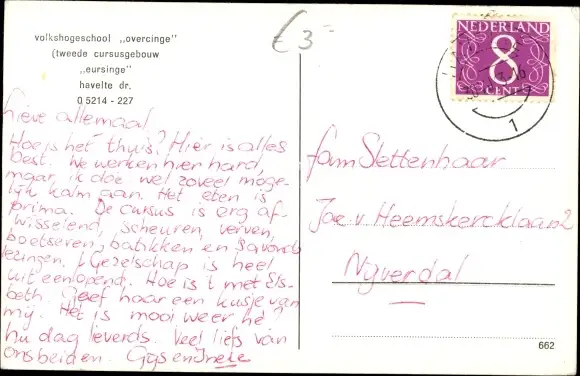 volkshogeschool „overcinge"
(tweede cursusgebouw
„eursinge"
havelte dr.
0 5214 - 227
€ 3-
NEDERLAND
8
CENT
1
Lieve allemaal
Hoe is het thuis? Hier is alles
best. We werken hier hard,
maar ik doe wel zoveel moge-
lijk kalm aan. Het eten is
prima. De cursus is erg af-
wisselend, scheuren, verven,
boetseren, batikken en 's avonds
lezingen. 't Gezelschap is heel
uiteenlopend. Hoe is 't met Els-
beth. Geef haar een kusje van
mij. Het is mooi weer hè?
nu dag lieverds. Veel liefs van
ons beiden. Gijs en Ineke
fam Slettenhaar
Joe v. Heemskercklaan 2
Nijverdal
662